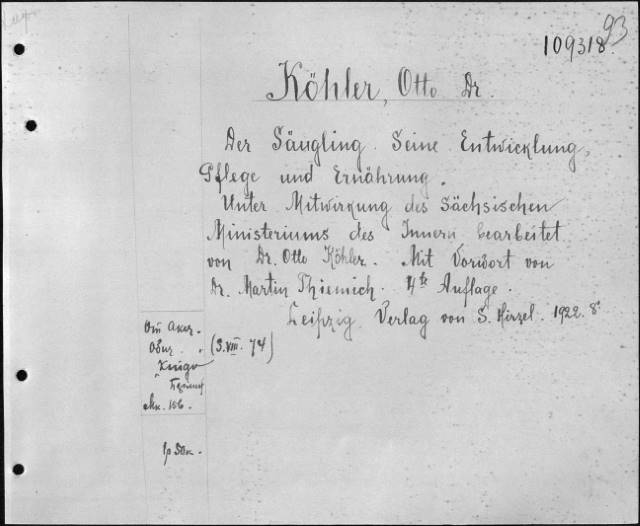 93
109318.
Köhler, Otto Dr.
Der Säugling. Seine Entwicklung,
Pflege und Ernährung.
Unter Mitwirkung des Sächsischen
Ministeriums des Innern bearbeitet
von Dr. Otto Köhler. Mit Vorwort von
Dr. Martin Thiemich. 4te Auflage.
Leipzig Verlag von S. Hirzel. 1922. 8°
От Акц.
Общ. (3.VIII.74)
Книго